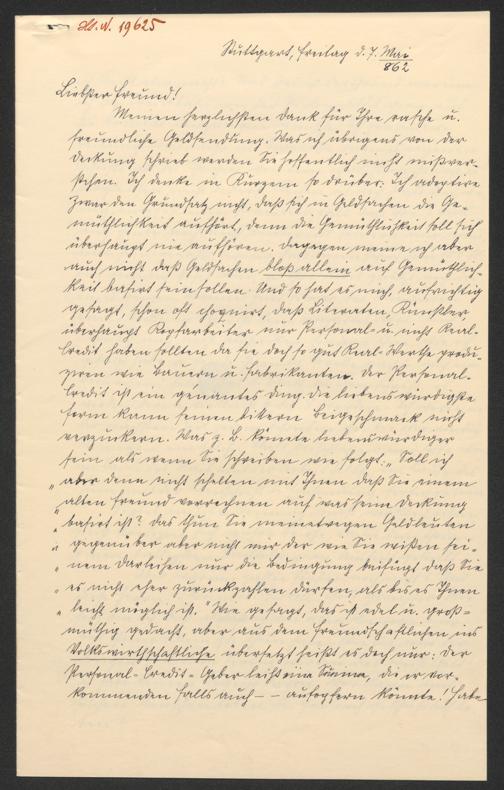 Hs. N. 19625
Stuttgart, Freitag d. 7. Mai
862
Liebster Freund!
Meinen herzlichsten Dank für Ihre rasche u.
freundliche Geldsendung. Was ich übrigens von der
Deckung schrieb werden Sie hoffentlich nicht mißver-
stehen. Ich denke in Kurzem so drüber: Ich adoptire
zwar den Grundsatz nicht, daß sich in Geldsachen die Ge-
müthlichkeit aufhört, denn die Gemüthlichkeit soll sich
überhaupt nie aufhören. Dagegen meine ich aber
auch nicht daß Geldsachen bloß allein auf Gemüthlich-
keit basirt sein sollen. Und so hat es mich, aufrichtig
gesagt, schon oft choquirt, daß Literaten, Künstler
überhaupt Kopfarbeiter nur Personal- u. nicht Real-
Credit haben sollten da sie doch so gut Real-Werthe produ-
ziren wie Bauern u. Fabrikanten. Der Personal-
Credit ist ein genantes Ding. Die liebenswürdigste
Form kann seinen bittern Beigeschmack nicht
verzuckern. Was z. B. könnte liebenswürdiger
sein als wenn Sie schreiben wie folgt: „Soll ich
„aber denn nicht schelten mit Ihnen daß Sie einem
„alten Freund vorrechnen auf was seine Deckung
„basirt ist? Das thun Sie meinetwegen Geldleuten
„gegenüber aber nicht mir der wie Sie wißen sei-
„nem Darleihen nur die Bedingung beifügt daß Sie
„es nicht eher zurückzahlen dürfen, als bis es Ihnen
„leicht möglich ist." Wie gesagt, das ist edel u. groß-
müthig gedacht, aber aus dem Freundschaftlichen ins
Volkswirthschaftliche übersetzt heißt es doch nur: Der
Personal-Credit-Geber leiht eine Summe, die er vor-
kommenden Falls auch – – aufopfern könnte! Habe